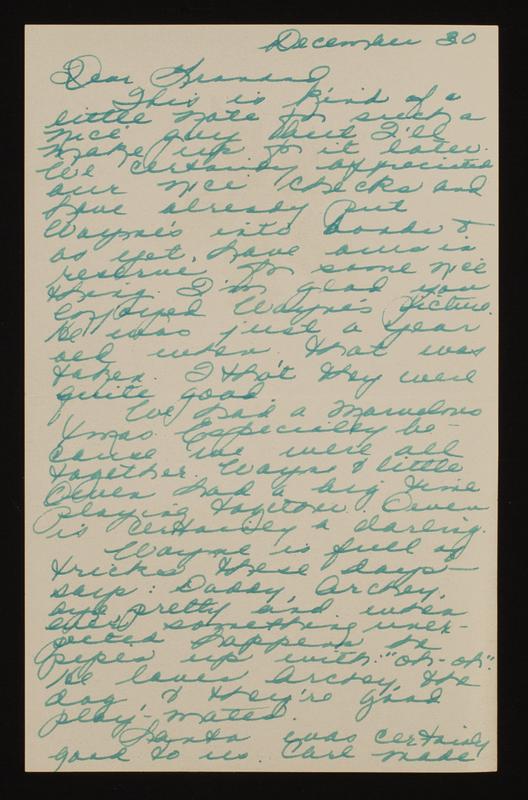 December 30
Dear Grandad
This is kind of a
little note for such a
nice guy but I'll
make up for it later.
We certainly appreciate
our nice checks and
have already put
Wayne's into bonds &
as yet, have ours in
reserve for some nice
thing. I'm glad you
enjoyed Wayne's picture.
He was just a year
old when that was
taken. I tho't they were
quite good.
We had a marvelous
Xmas. Especially be-
cause we were all
together. Wayne & little
had a big time
playing together.
is certainly a darling.
Wayne is full of
tricks these days -
says: Daddy, Archey,
bye pretty and when
ever something unex-
pected happens he
pipes up with "oh-oh".
He loves Archey the
dog & they're good
play-mates.
Santa was certainly
good to us. Carl made